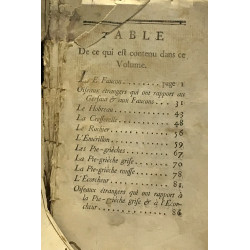 TABLE
De ce qui est contenu dans ce
Volume.
LE Faucon. . . . . . . . page 1
Oiseaux étrangers qui ont rapport au
Gerfaut & aux Faucons. . . 31
Le Hobereau. . . . . . . . 43
La Cresserelle . . . . . . . 48
Le Rochier. . . . . . . . 56
L'Emérillon. . . . . . . . 59
Les Pie-grièches. . . . . . 67
La Pie-grièche grise. . . . . 70
La Pie-grièche rousse. . . . 78
L'Ecorcheur. . . . . . . . 81
Oiseaux étrangers qui ont rapport à
la Pie-grièche grise & à l'Ecor-
cheur. . . . . . . . . 84